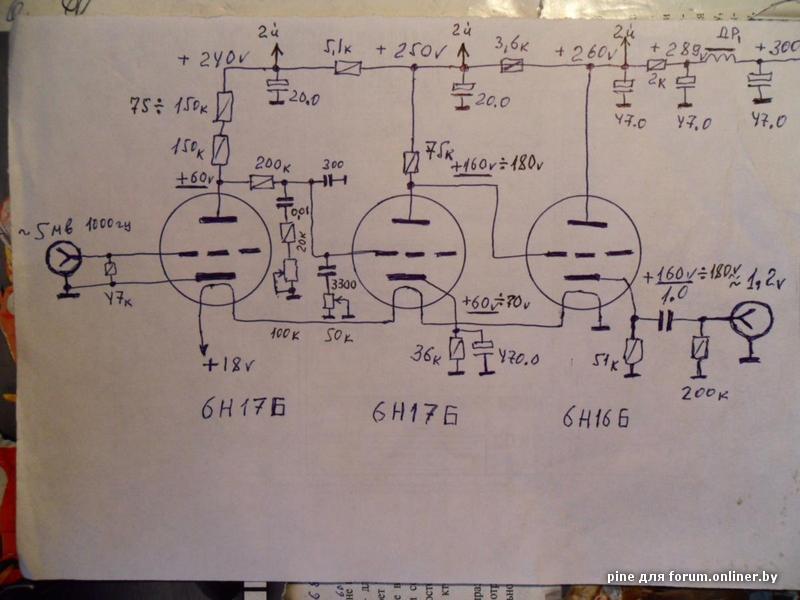 2й
2й
2й
ДР₁
+ 240v
5,1к
+ 250v
3,6к
+ 260v
+ 289
+ 300
2к
20.0
20.0
47.0
47.0
47.0
75÷ 150к
150к
75к
+60v
200к
300
+160v ÷180v
~5мв 1000гц
0,01
20к
47к
3300
+60v÷70v
+160v÷180v
1.0
≈ 1,2v
100к
50к
36к
470.0
51к
200к
+18v
6Н17Б
6Н17Б
6Н16Б
pine для forum.onliner.by